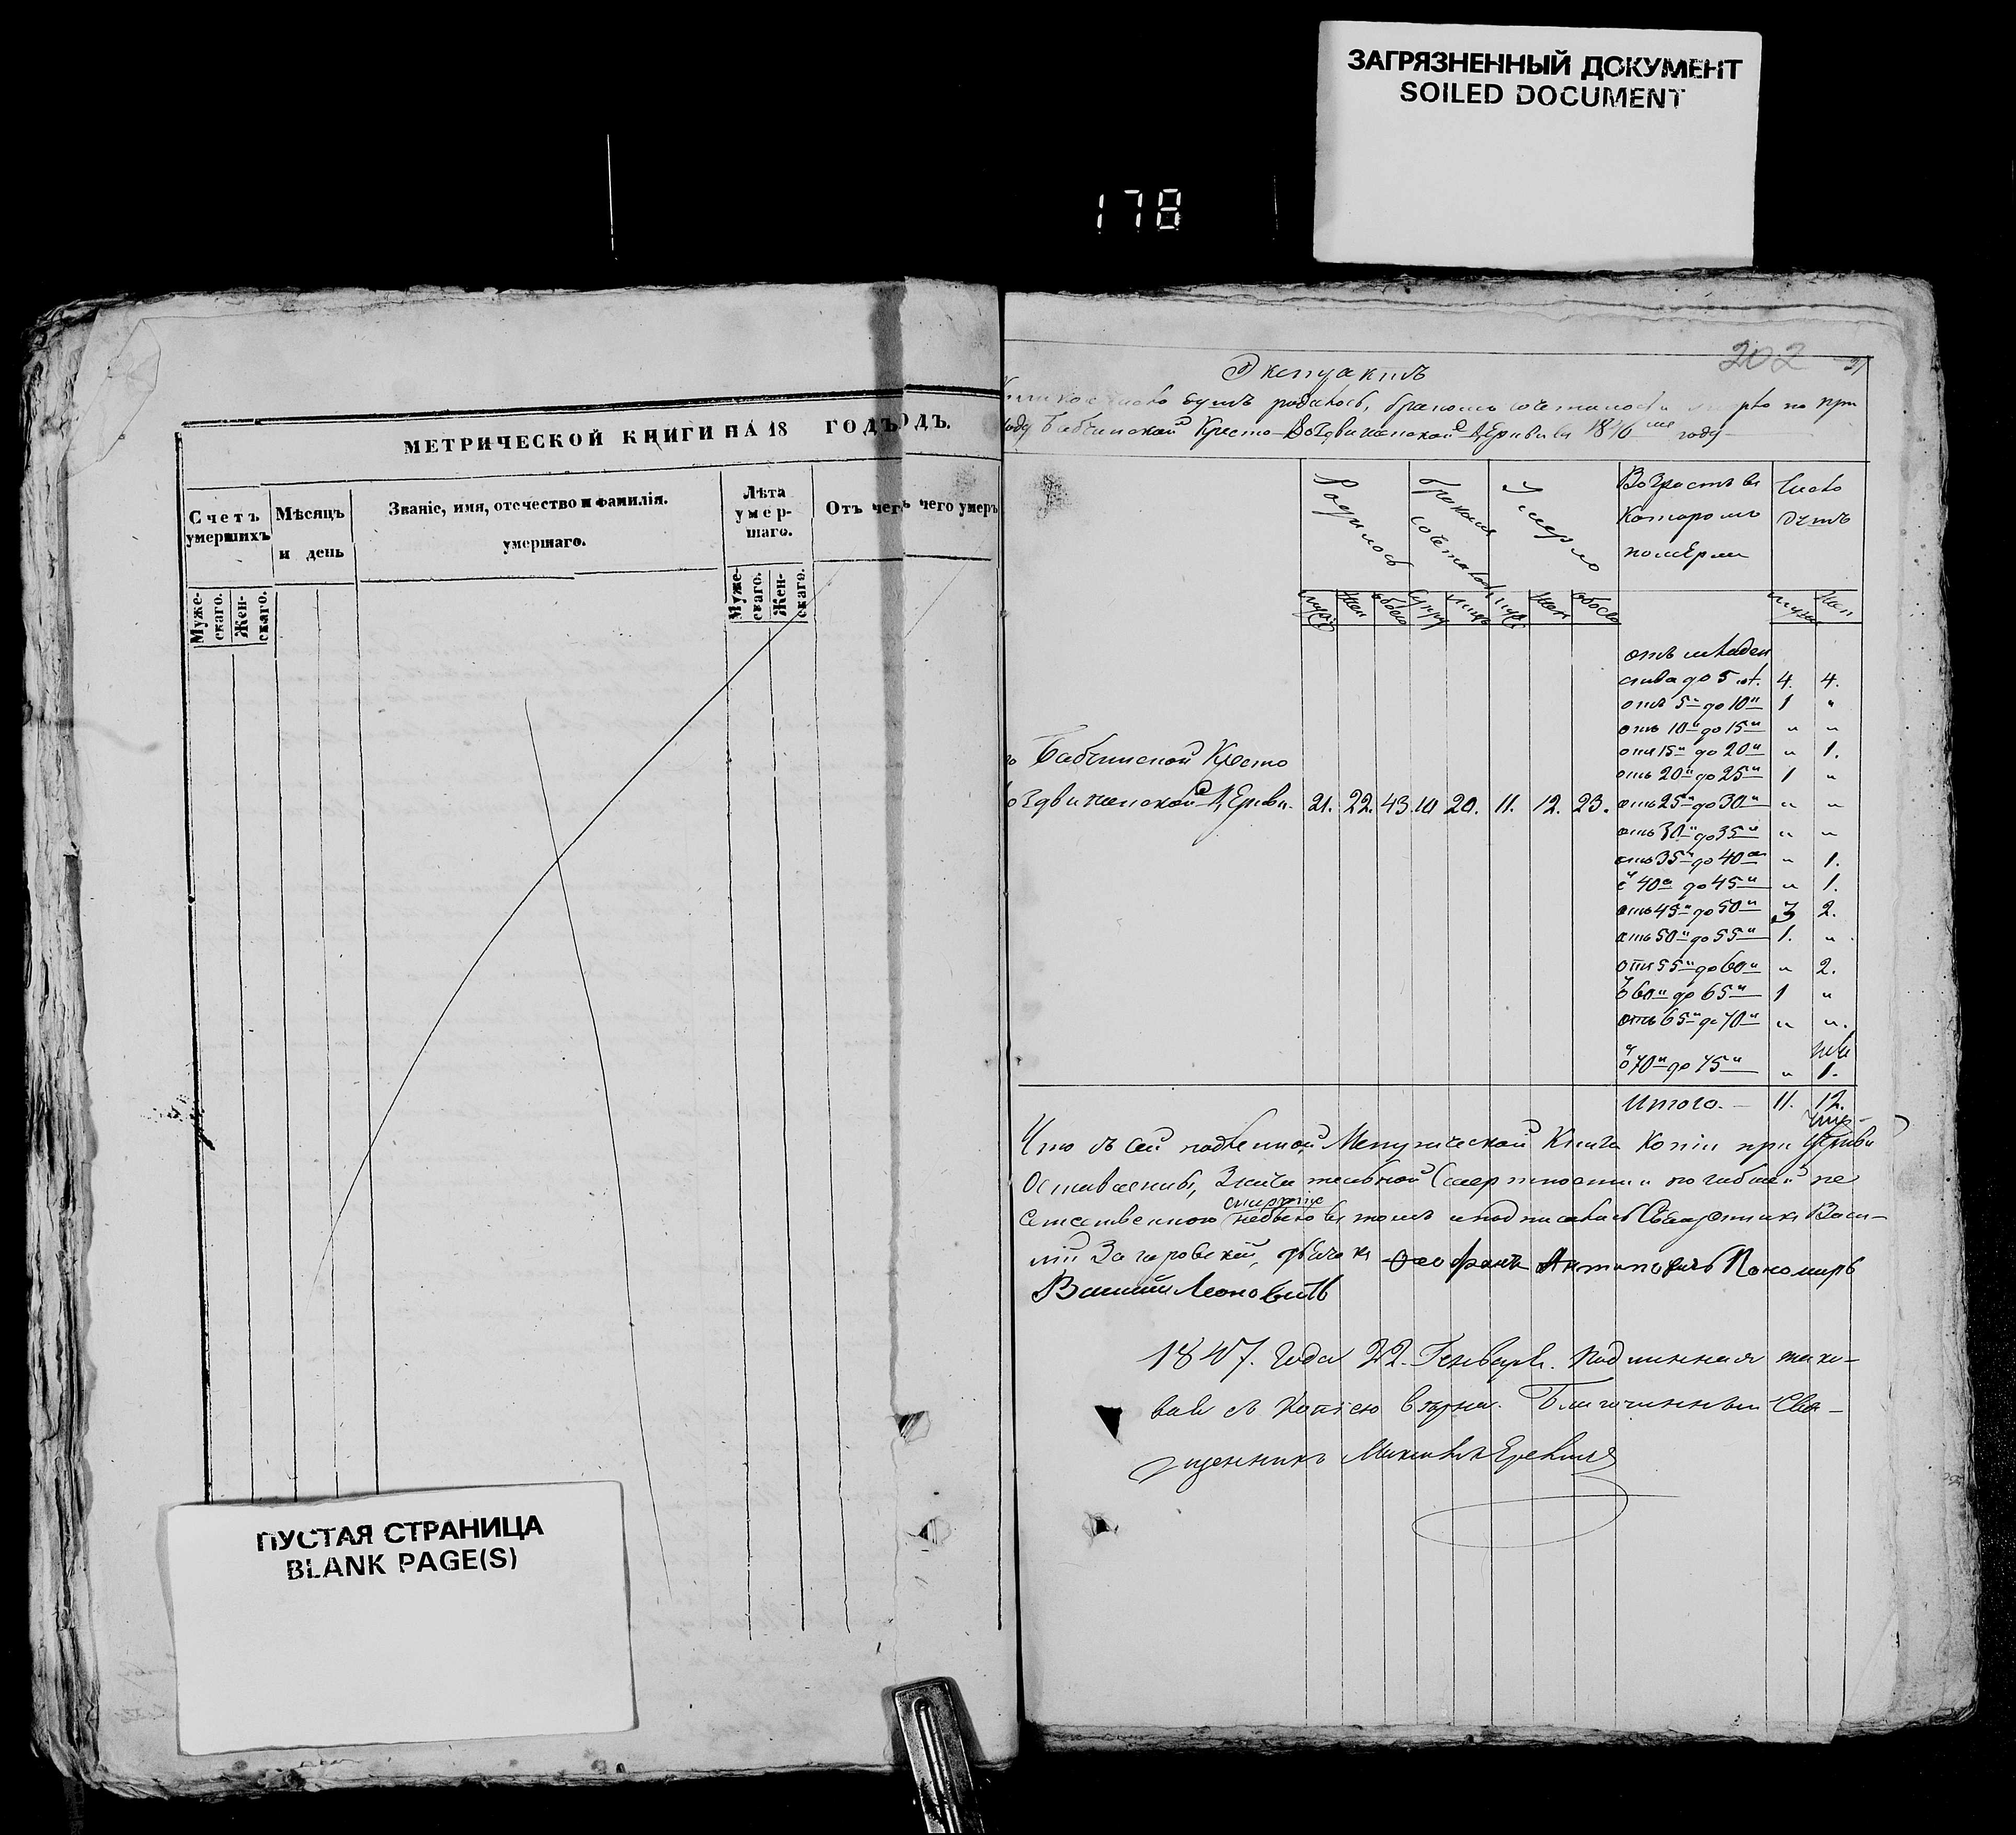 ЗАГРЯЗНЕННЫЙ ДОКУМЕНТ
SOILED DOCUMENT
178
МЕТРИЧЕСКОЙ КНИГИ НА 18 ГОДЪ ОДЪ.
Счетъ умершихъ
Муже-скаго.
Жен-скаго.
Мѣсяцъ и день
Званіе, имя, отечество и фамилія.
умершаго.
Лѣта умер-шаго.
Муже-скаго.
Жен-скаго.
Отъ чег ъ чего умеръ
ПУСТАЯ СТРАНИЦА
BLANK PAGE(S)
202
Экстрактъ
число душъ родилось, бракомъ сочеталось и умерло по при
ходу Бабчинской Кресто-Воздвиженской Церкви въ 1846 году
Родилось
бракомъ сочеталось
Умерло
Возрастъ въ
Которомъ
померли
Число
душъ
муж
жен
обоего
супру
лицъ
муж
жен
обоего
муж
жен
отъ младен
ства до 5 лѣт. 4. 4.
отъ 5 до 10 1 "
отъ 10 до 15 " "
отъ 15 до 20 " 1.
отъ 20 до 25 1 "
Бабчинской Кресто
оздвиженской Церкви. 21. 22. 43. 10 20. 11. 12. 23. отъ 25 до 30 " "
отъ 30 до 35 " "
отъ 35 до 40 " 1.
40 до 45 " 1.
отъ 45 до 50 3 2.
отъ 50 до 55 1. "
отъ 55 до 60 " 2.
60 до 65 1 "
отъ 65 до 70 " "
70 до 75 " 1.
Итого. 11. 12.
Что съ сей Метрической Книги Копіи при Церкви
Оставлены, Значительной Смертности и погибшей не
естественною смертію небыло въ томъ и подписались Священникъ Васи-
лій Загоровскій, дьячокъ Ѳеофанъ Антоновичъ Пономарь
Василій Леоновичъ
1847. Года 22. Генваря. Подлинная тако-
вая съ Копіею вѣрна. Благочинный Свя-
щенникъ